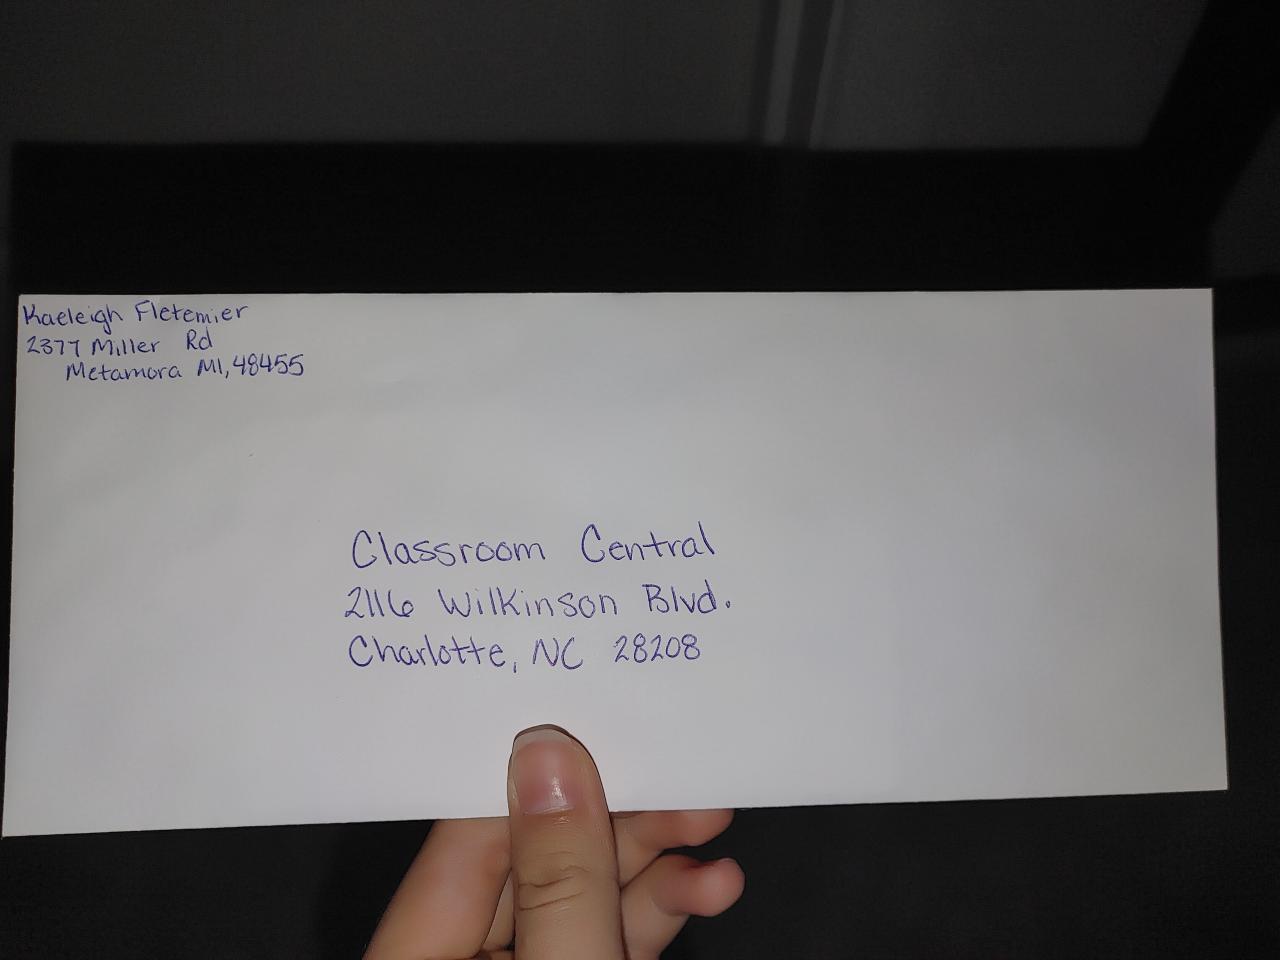 Kaeleigh Fletemier
2377 Miller Rd
Metamora MI, 48455
Classroom Central
2116 Wilkinson Blvd.
Charlotte, NC 28208